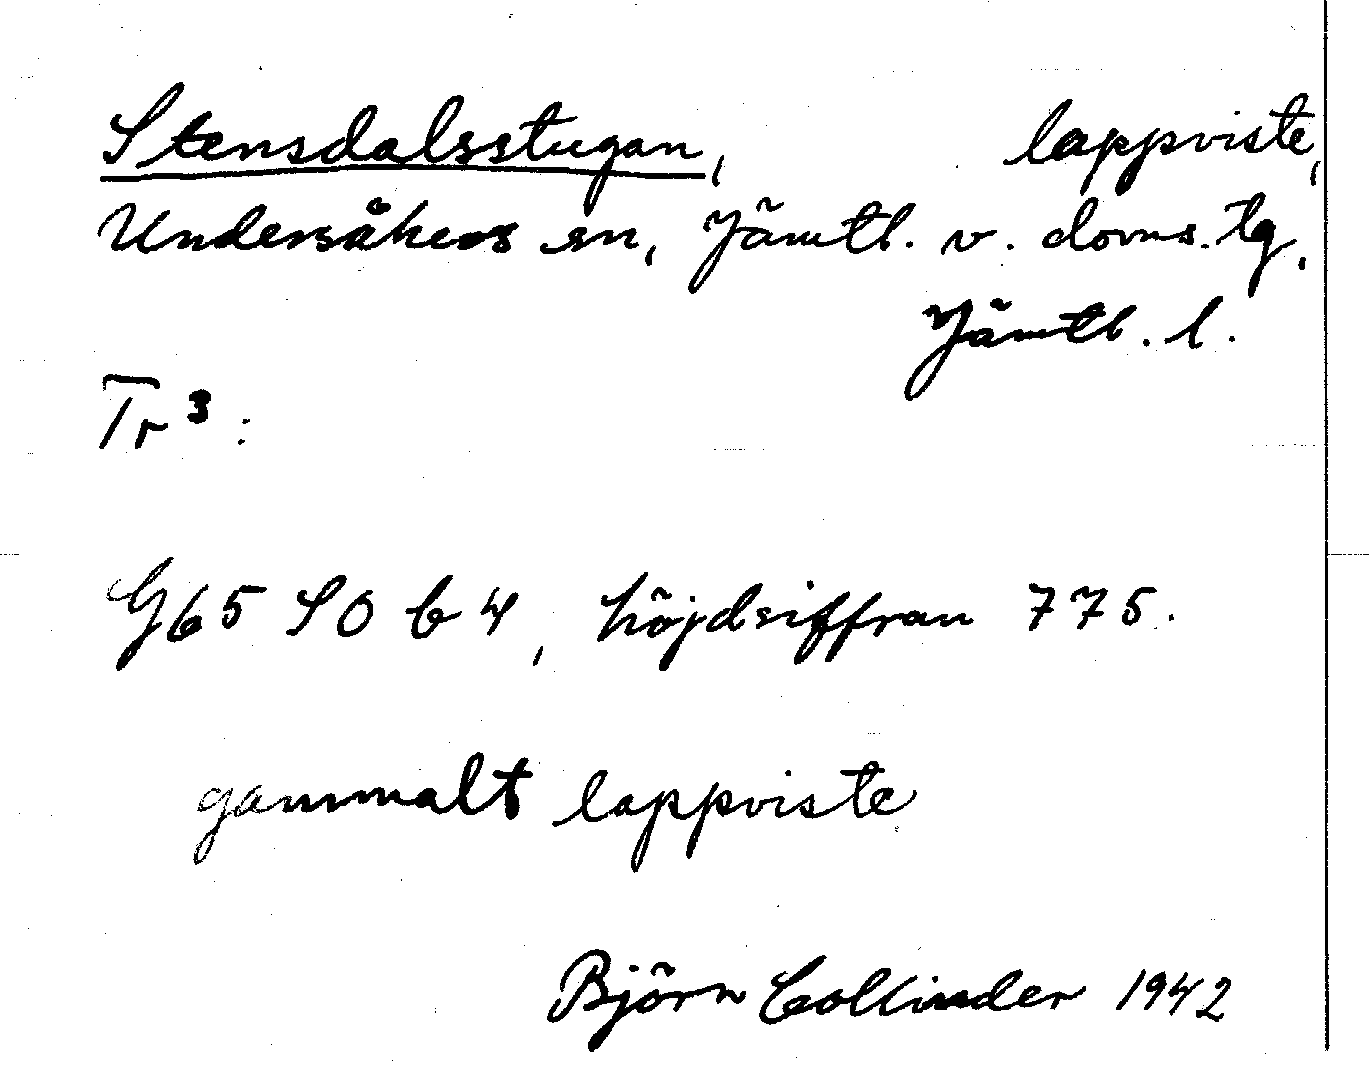 Stensdalsstugan, lappviste,
Undersåkers sn, Jämtl. v. doms. tg,
Jämtl. l.
Tr³:
G65 SO b 4, höjdsiffran 775.
gammalt lappviste
Björn Collinder 1942